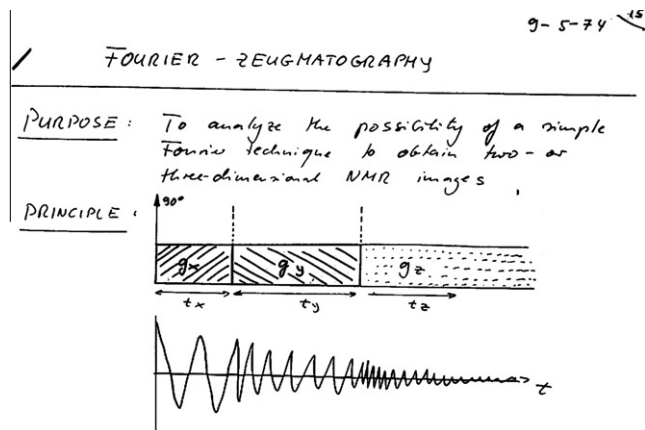 9-5-74 15
FOURIER - ZEUGMATOGRAPHY
PURPOSE: To analyze the possibility of a simple
Fourier technique to obtain two- or
three-dimensional NMR images,
PRINCIPLE:
90°
gx gy gz
tx ty tz
t